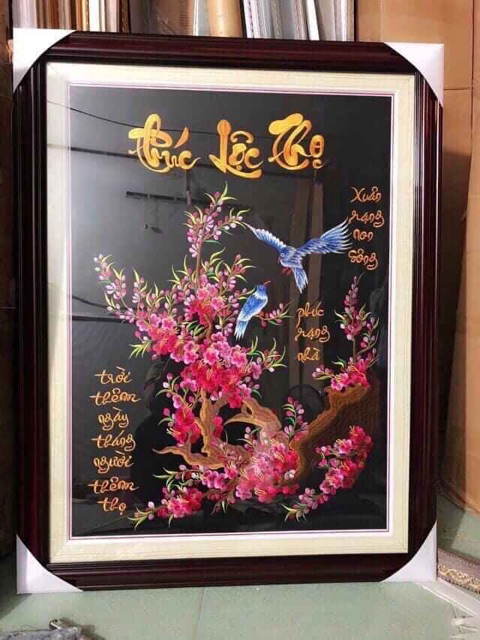 Phúc Lộc Thọ
Xuân
rạng
non
sông
phúc
rạng
nhà
trời
thêm
ngày
tháng
người
thêm
thọ